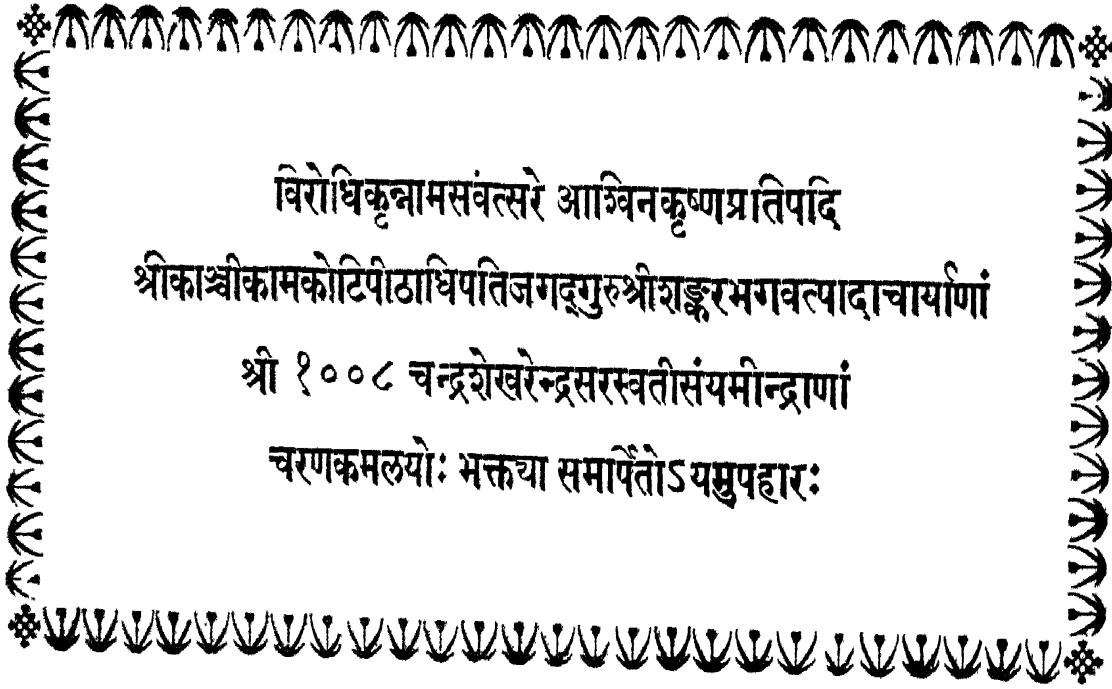 विरोधिकृन्नामसवंत्सरे आश्विनकृष्णप्रतिपदि
श्रीकाञ्चीकामकोटिपीठाधिपतिजगद्गुरुश्रीशङ्करभगवत्पादाचार्याणां
श्री १००८ चन्द्रशेखरेन्द्रसरस्वतीसंयमीन्द्राणां
चरणकमलयोः भक्तया समर्पितोऽयमुपहारः